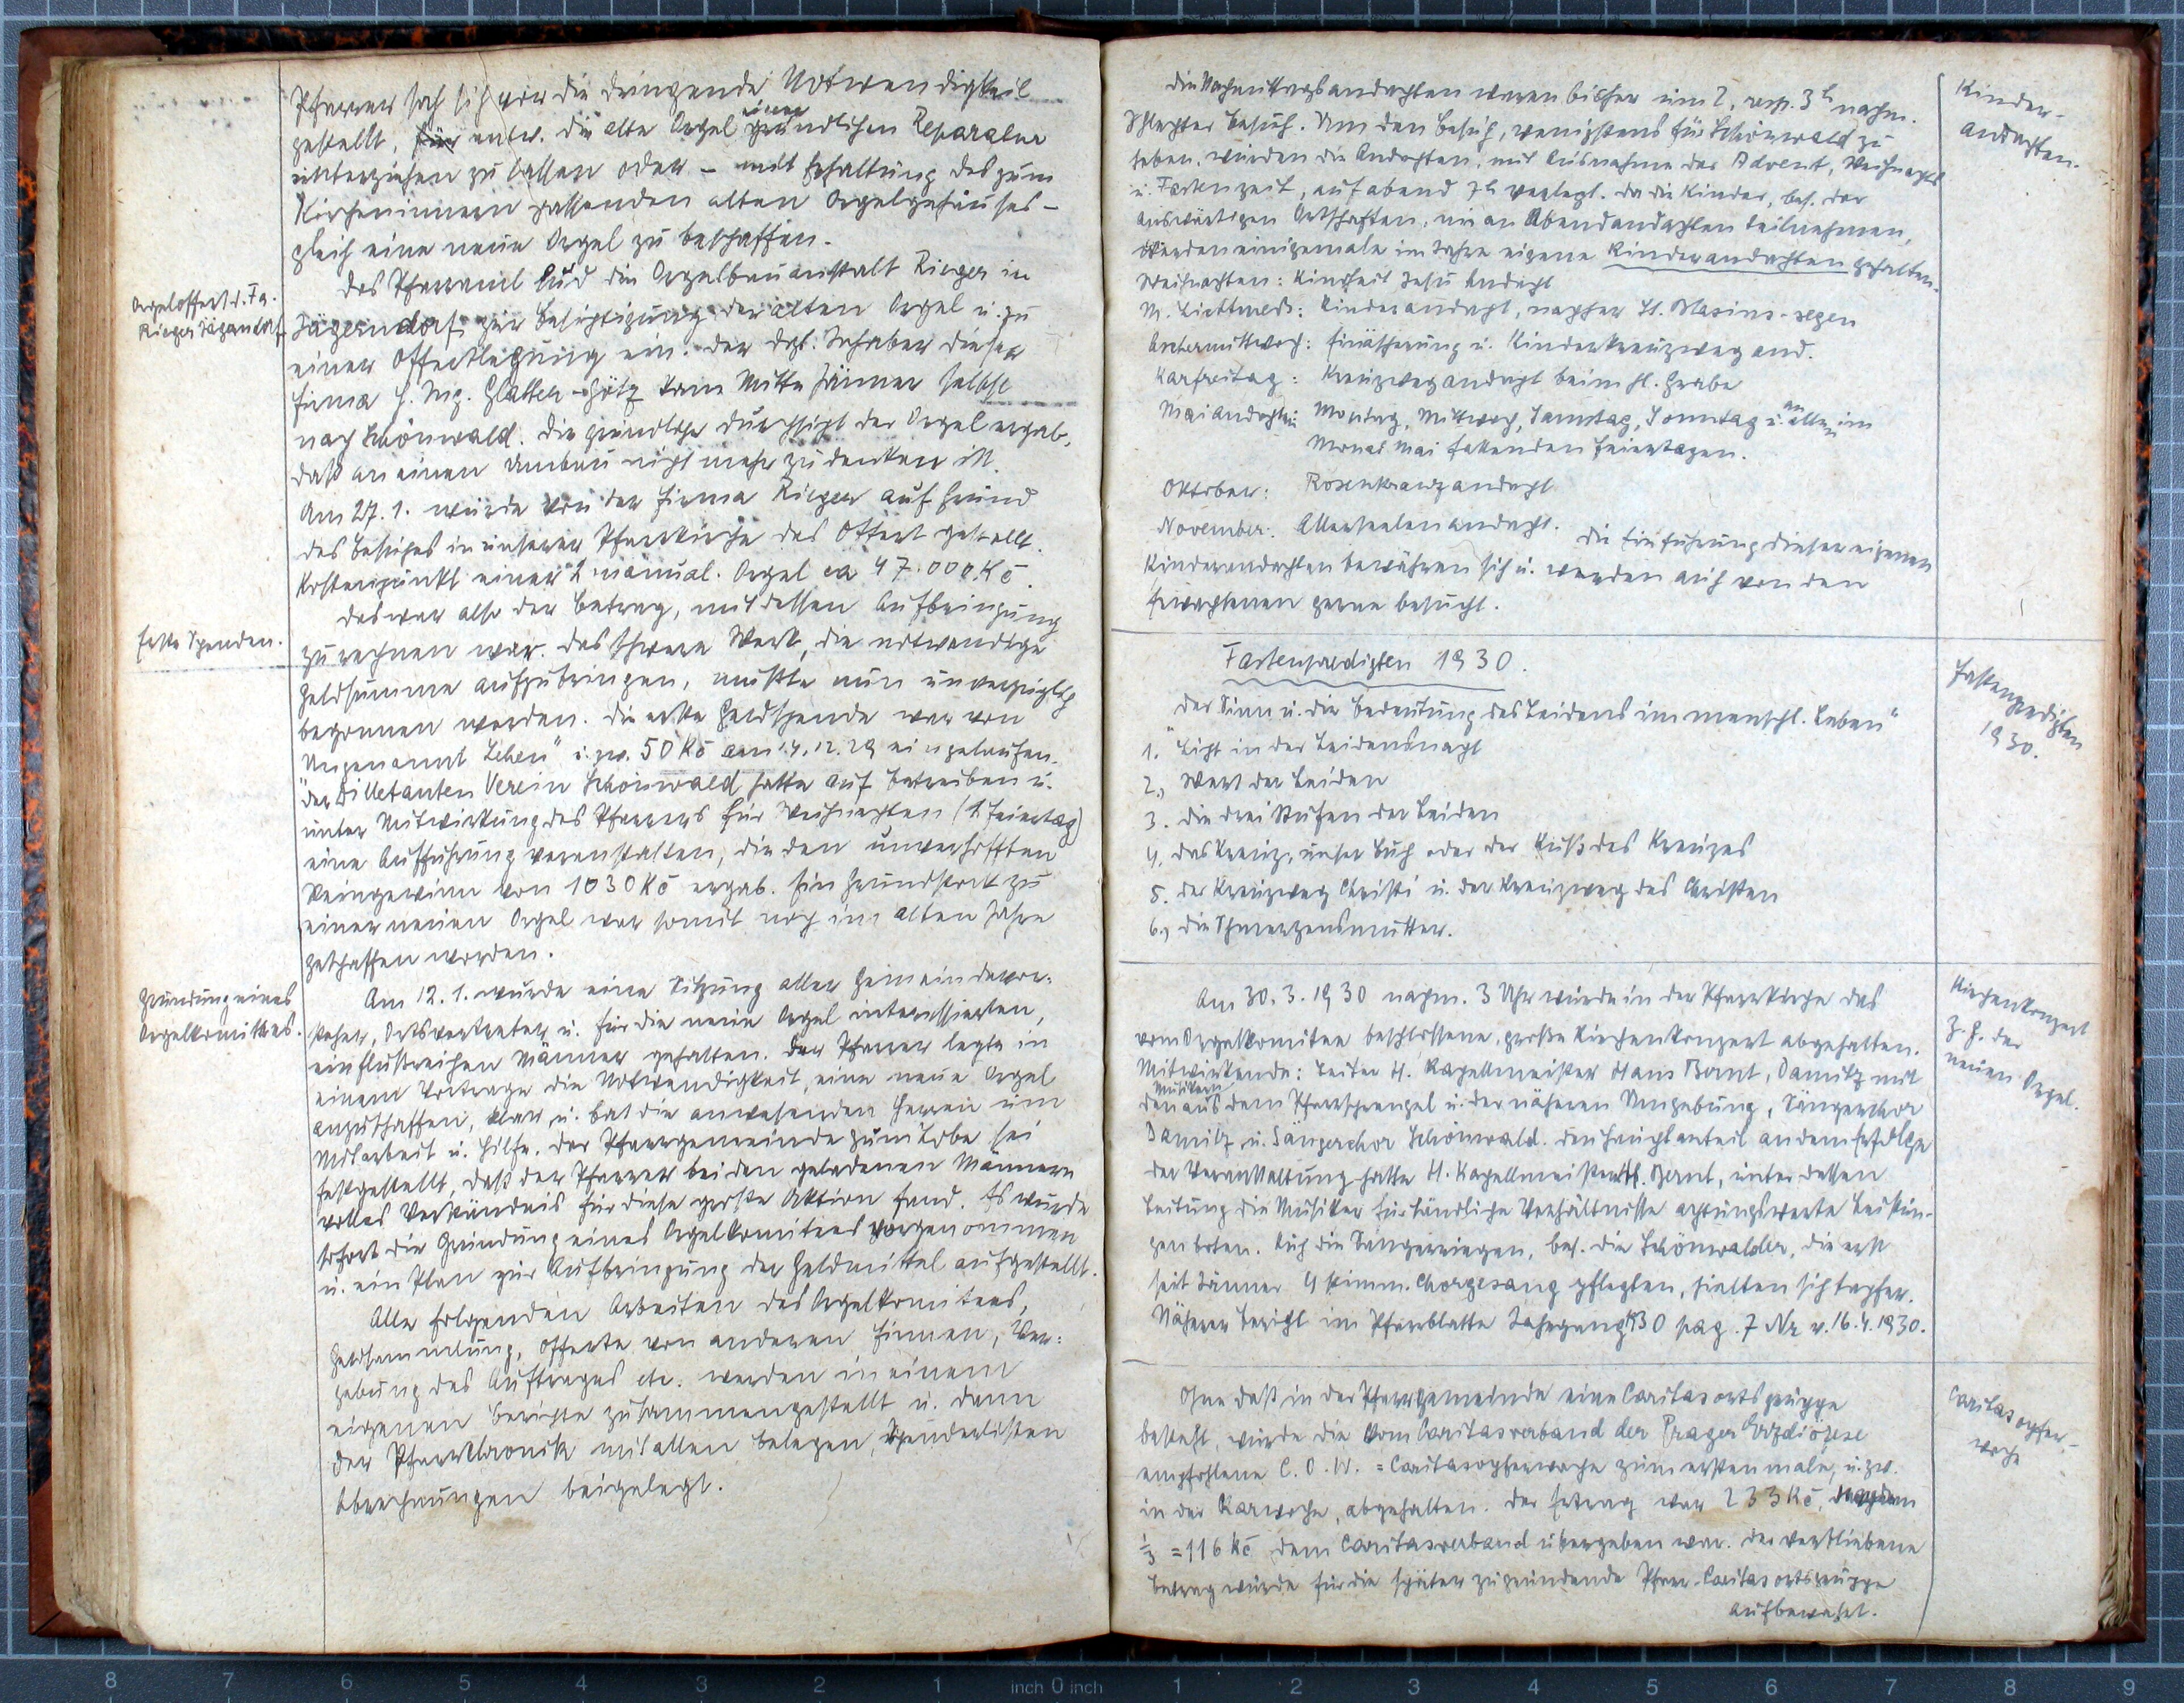 Pfarrer sah sich vor die dringende Notwendigkeit
gestellt, für entw. die alte Orgel einer gründlichen Reparatur
unterziehen zu lassen oder – mit Erhaltung des zum
Kircheninnern passenden alten Orgelgehäuses –
gleich eine neue Orgel zu beschaffen.
Das Pfarramt lud die Orgelbauanstalt Rieger in
Orgeloffert d. Fa.
Rieger Jägerndorf
Jägerndorf zur Besichtigung der alten Orgel u. zu
einer Offertlegung ein. Der dzt. Inhaber dieser
Firma H. Ing. Glatter-Götz kam Mitte Jänner selbst
nach Schönwald. Die gründliche Durchsicht der Orgel ergab,
daß an einen Umbau nicht mehr zu denken ist.
Am 27.1. wurde von der Firma Rieger auf Grund
des Besuches in unserer Pfarrkirche das Offert gestellt.
Kostenpunkt einer 2 manual. Orgel ca 47.000 Kč.
Das war also der Betrag, mit dessen Aufbringung
Erste Spenden.
zu rechnen war. Das schwere Werk, die notwendige
Geldsumme aufzubringen, mußte nun unverzüglich
begonnen werden. Die erste Geldspende war von
"Ungenannt Leben" u. zw. 50 Kč am 14.12.29 eingelaufen.
Der Dilletanten Verein Schönwald hatte auf Betreiben u.
unter Mitwirkung des Pfarrers für Weihnachten (1. Feiertag)
eine Aufführung veranstalten, die den unverhofften
Reingewinn von 1030 Kč ergab. Ein Grundstock zu
einer neuen Orgel war somit noch im alten Jahre
geschaffen worden.
Gründung eines
Orgelkomitees.
Am 12.1. wurde eine Sitzung aller Gemeindevor-
steher, Ortsvertreter u. für die neue Orgel interessierten,
einflußreichen Männer gehalten. Der Pfarrer legte in
einem Vortrage die Notwendigkeit, eine neue Orgel
anzuschaffen, klar u. bat die anwesenden Herren um
Mitarbeit u. Hilfe. Der Pfarrgemeinde zum Lobe sei
festgestellt, daß der Pfarrer bei den geladenen Männern
volles Verständnis für diese große Aktion fand. Es wurde
sofort die Gründung eines Orgelkomitees vorgenommen
u. ein Plan zur Aufbringung der Geldmittel aufgestellt.
Alle folgenden Arbeiten des Orgelkomitees,
Geldsammlung, Offerte von anderen Firmen, Ver-
gebung des Auftrages etc. werden in einem
eigenen Berichte zusammengestellt u. dann
der Pfarrchronik mit allen Belegen, Spenderlisten
Abrechnungen beigelegt.
Die Nachmittagsandachten waren bisher um 2, resp. 3h nachm.
Kinder-
andachten.
schlechter Besuch. Um den Besuch, wenigstens für Schönwald zu
heben, wurden die Andachten, mit Ausnahme der Advent, Weihnachts
u. Fastenzeit, auf abend 7h verlegt. Da die Kinder, bes. der
auswärtigen Ortschaften, nie an Abendandachten teilnehmen,
werden einigemale im Jahre eigene Kinderandachten gehalten.
Weihnachten: Kindheit Jesu Andacht
M. Lichtmeß: Kinderandacht, nachher Hl. Blasius-segen
Aschermittwoch: Einäscherung u. Kinderkreuzwegand.
Karfreitag: Kreuzwegandacht beim hl. Grabe
Maiandacht: Montag, Mittwoch, Samstag, Sonntag u. an allen im
Monat Mai fallenden Feiertagen.
Oktober: Rosenkranzandacht
November: Allerseelenandacht. Die Einführung dieser eigenen
Kinderandachten bewähren sich u. werden auch von den
Erwachsenen gerne besucht.
Fastenpredigten 1930.
Fastenpredigten
1930.
"Der Sinn u. die Bedeutung des Leidens im menschl. Leben"
1. Licht in der Leidensnacht
2., Wert der Leiden
3. Die drei Stufen der Leiden
4. Das Kreuz, unser Buch oder der Kuß des Kreuzes
5. Der Kreuzweg Christi u. der Kreuzweg des Christen
6., Die Schmerzensmutter.
Am 30.3.1930 nachm. 3 Uhr wurde in der Pfarrkirche das
Kirchenkonzert
z. G. der
neuen Orgel.
vom Orgelkomitee beschlossene, große Kirchenkonzert abgehalten.
Mitwirkende: Leiter H. Kapellmeister Hans Bernt, Damitz mit
den Musikern aus dem Pfarrsprengel u. der näheren Umgebung, Sängerchor
Damitz u. Sängerchor Schönwald. Den Hauptanteil an dem Erfolge
der Veranstaltung hatte H. Kapellmeister H. Bernt, unter dessen
Leitung die Musiker für ländliche Verhältnisse achtungswerte Leistun-
gen boten. Auch die Sängerriegen, bes. die Schönwalder, die erst
seit Jänner 4 stimm. Chorgesang pflegten, hielten sich tapfer.
Näherer Bericht im Pfarrblatte Jahrgang 1930 pag. 7 Nr v. 16.4.1930.
Ohne daß in der Pfarrgemeinde eine Caritasortsgruppe
Caritasopfer-
woche
besteht, wurde die vom Caritasverband der Prager Erzdiözese
empfohlene C.O.W. = Caritasopferwoche zum erstenmale, u. zw.
in der Karwoche, abgehalten. Der Ertrag war 233 Kč,
1/3 = 116 Kč dem Caritasverband übergeben war. Der verbliebene
Betrag wurde für die später zu gründende Pfarr-Caritasortsgruppe
aufbewahrt.